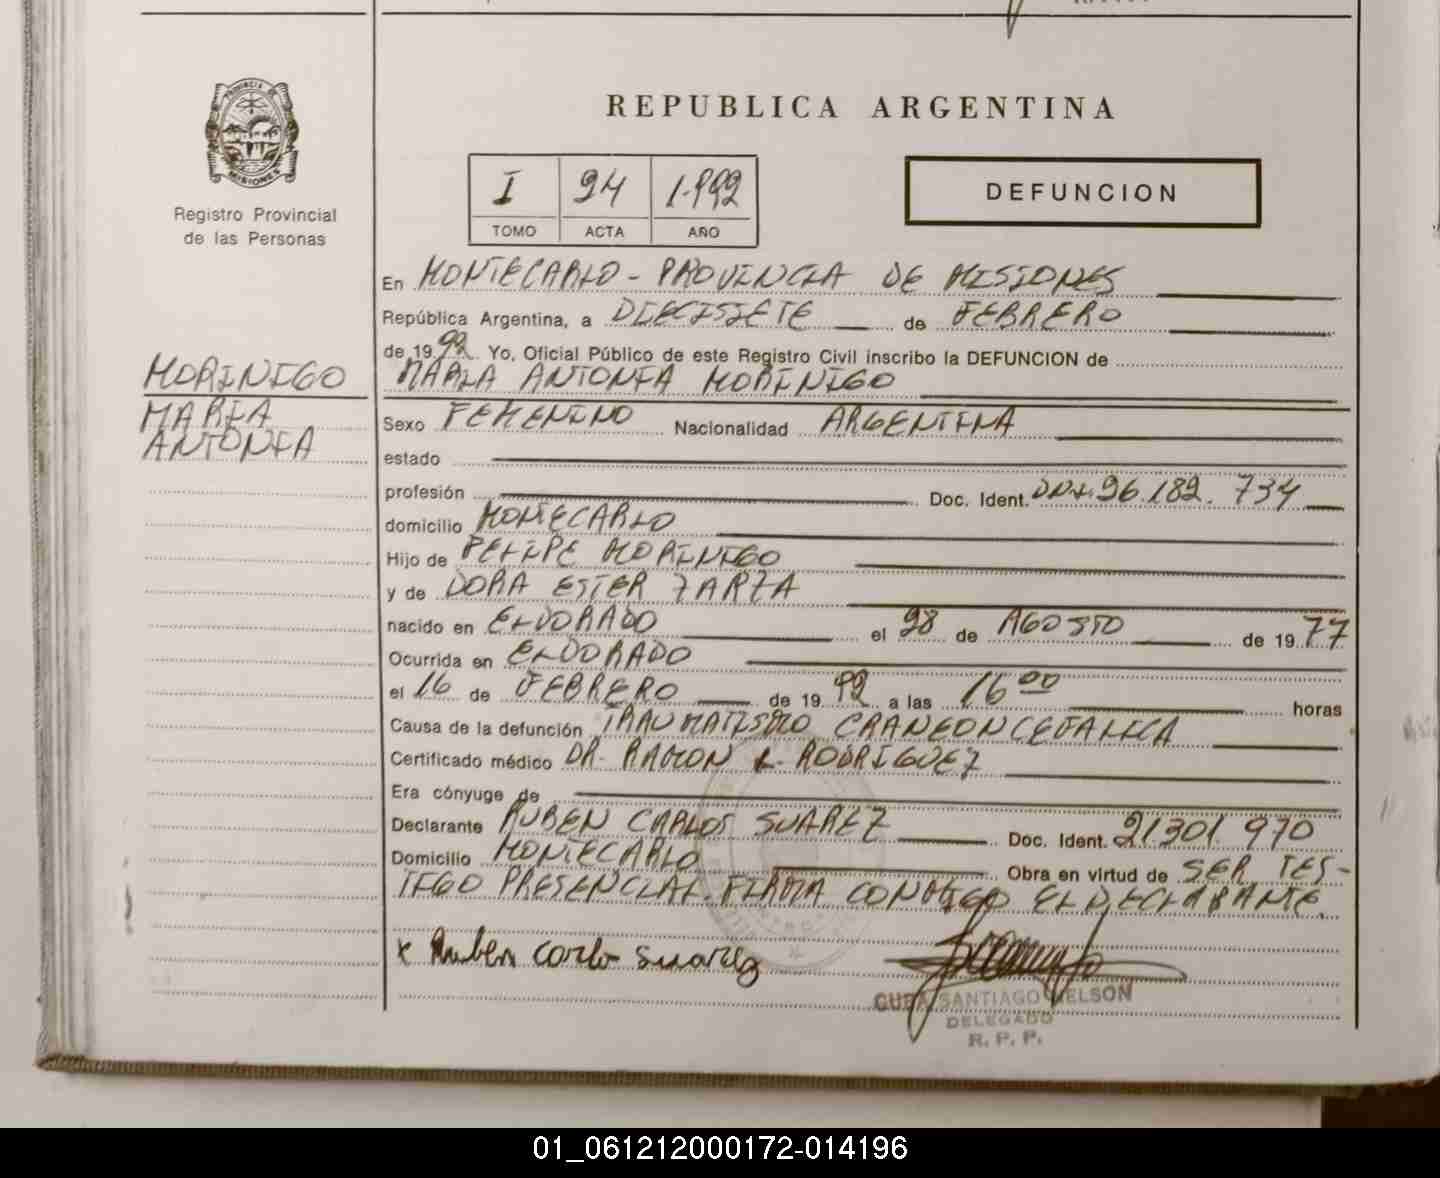 REPUBLICA ARGENTINA
PROVINCIA DE
MISIONES
Registro Provincial
de las Personas
I 24 1.992
TOMO ACTA AÑO
DEFUNCION
En MONTECARLO - PROVINCIA DE MISIONES
República Argentina, a DIECISIETE de FEBRERO
de 1992 Yo, Oficial Público de este Registro Civil inscribo la DEFUNCION de
MARIA ANTONIA MORINIGO
MORINIGO
MARIA
ANTONIA
Sexo FEMENINO Nacionalidad ARGENTINA
estado
profesión Doc. Ident. DNI. 26.182.734
domicilio MONTECARLO
Hijo de FELIPE MORINIGO
y de DORA ESTER ZARZA
nacido en ELDORADO el 28 de AGOSTO de 1977
Ocurrida en ELDORADO
el 16 de FEBRERO de 1992 a las 16 00 horas
Causa de la defunción TRAUMATISMO CRANEONCEFALICA
Certificado médico DR. RAMON R. RODRIGUEZ
Era cónyuge de
Declarante RUBEN CARLOS SUAREZ Doc. Ident. 21301970
Domicilio MONTECARLO Obra en virtud de SER TES-
TIGO PRESENCIAL. FIRMA CONMIGO EL DECLARANTE.
x Ruben Carlo Suarez
CUBA SANTIAGO NELSON
DELEGADO
R. P. P.
01_061212000172-014196